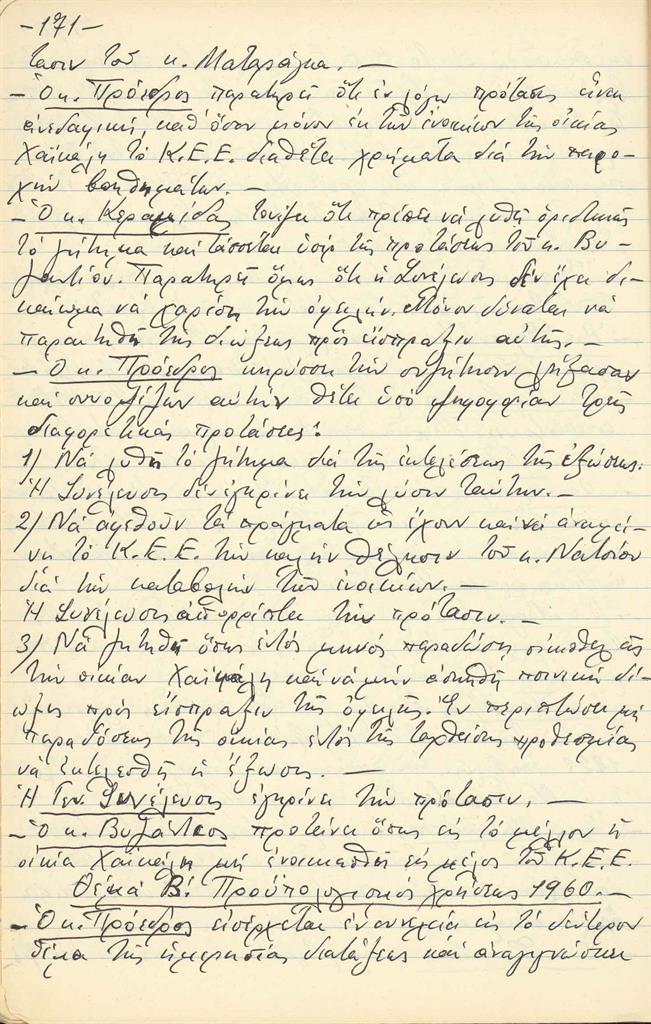 -171-
τασιν τοῦ κ. Ματαράγκα. —
- Ὁ κ. Πρόεδρος παρατηρεῖ ὅτι ἐν λόγῳ πρότασις εἶναι
ἀνεδαφική, καθ' ὅσον μόνον ἐκ τῶν ἐνοικίων τῆς οἰκίας
Χαϊκάλη τὸ Κ.Ε.Ε. διαθέτει χρήματα διὰ τὴν παρο-
χὴν βοηθημάτων. —
- Ὁ κ. Κεραμίδας τονίζει ὅτι πρέπει νὰ λυθῇ ὁριστικῶς
τὸ ζήτημα καὶ τάσσεται ὑπὲρ τῆς προτάσεως τοῦ κ. Βυ-
ζαντίου. Παρατηρεῖ ὅμως ὅτι ἡ Συνέλευσις δὲν ἔχει δι-
καίωμα νὰ χαρίσῃ τὴν ὀφειλήν. Μόνον δύναται νὰ
παραιτηθῇ τῆς διώξεως πρὸς εἴσπραξιν αὐτῆς. —
- Ὁ κ. Πρόεδρος κηρύσσει τὴν συζήτησιν λήξασαν
καὶ συνοψίζων αὐτὴν θέτει ὑπὸ ψηφοφορίαν τρεῖς
διαφορετικὰς προτάσεις:
1) Νὰ λυθῇ τὸ ζήτημα διὰ τῆς ἐκτελέσεως τῆς ἐξώσεως.
Ἡ Συνέλευσις δὲν ἐγκρίνει τὴν λύσιν ταύτην. —
2) Νὰ ἀφεθοῦν τὰ πράγματα ὡς ἔχουν καὶ νὰ ἀναμεί-
νῃ τὸ Κ.Ε.Ε. τὴν καλὴν θέλησιν τοῦ κ. Νάτσιου
διὰ τὴν καταβολὴν τῶν ἐνοικίων. —
Ἡ Συνέλευσις ἀπορρίπτει τὴν πρότασιν. —
3) Νὰ ζητηθῇ ὅπως ἐντὸς μηνὸς παραδώσῃ οἰκειοθελῶς
τὴν οἰκίαν Χαϊκάλη καὶ νὰ μὴν ἀσκηθῇ ποινικὴ δί-
ωξις πρὸς εἴσπραξιν τῆς ὀφειλῆς. Ἐν περιπτώσει μὴ
παραδόσεως τῆς οἰκίας ἐντὸς τῆς ταχθείσης προθεσμίας
νὰ ἐκτελεσθῇ ἡ ἔξωσις. —
Ἡ Γεν. Συνέλευσις ἐγκρίνει τὴν πρότασιν. —
- Ὁ κ. Βυζάντιος προτείνει ὅπως εἰς τὸ μέλλον ἡ
οἰκία Χαϊκάλη μὴ ἐνοικιασθῇ εἰς μέλος τοῦ Κ.Ε.Ε.
Θέμα Β! Προϋπολογισμὸς χρήσεως 1960. —
- Ὁ κ. Πρόεδρος εἰσέρχεται ἐν συνεχείᾳ εἰς τὸ δεύτερον
θέμα τῆς ἡμερησίας διατάξεως καὶ ἀναγιγνώσκει